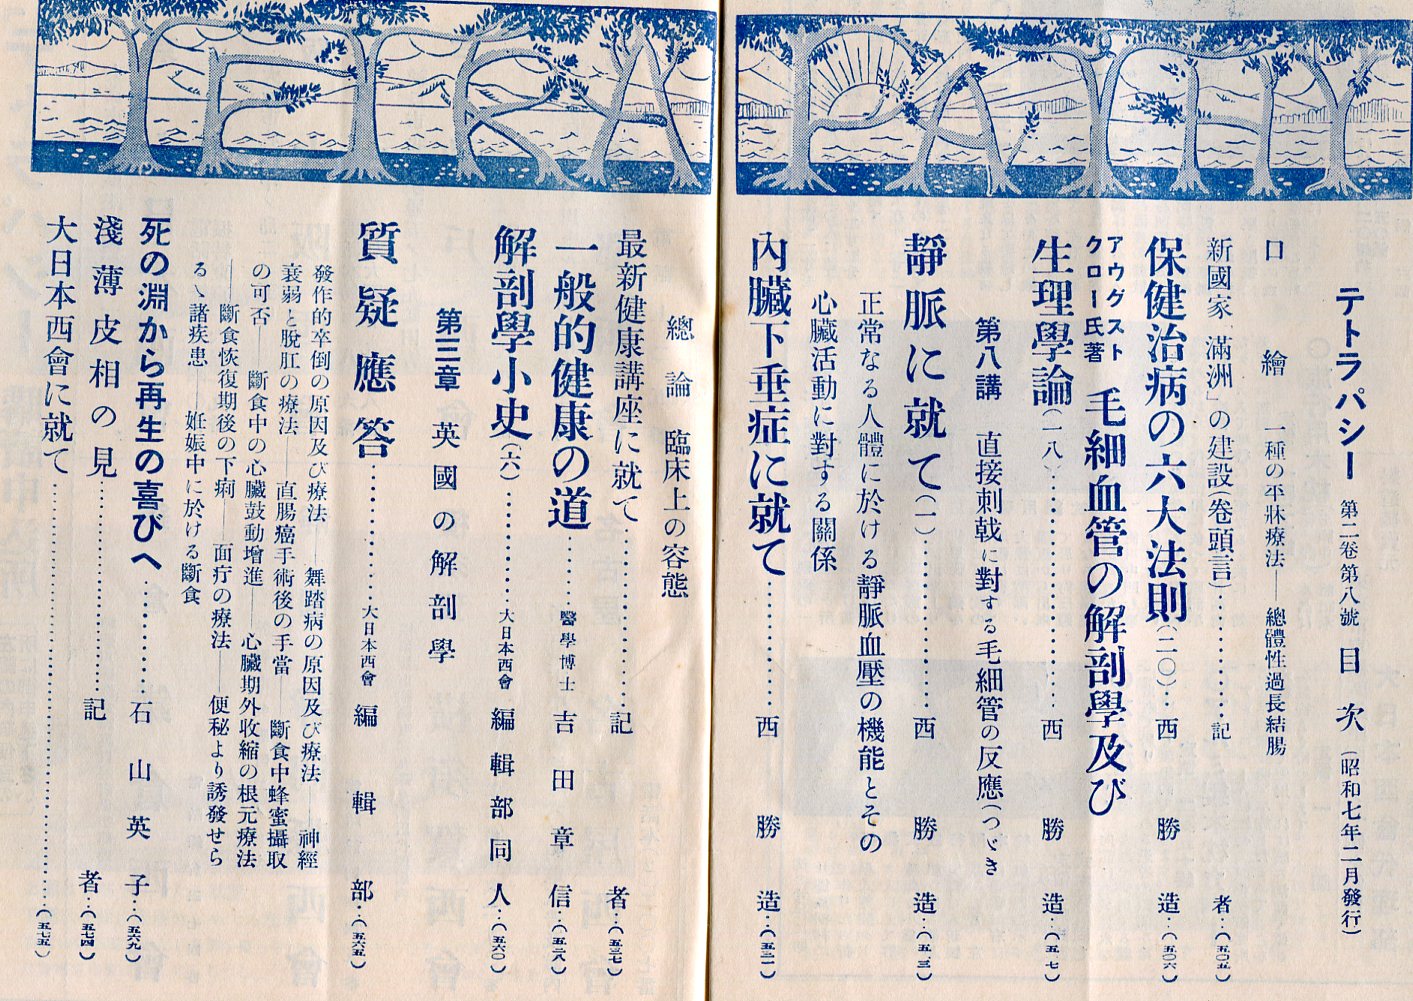 TETRA PATHY
テトラパシー 第二卷第八號 目次 (昭和七年二月發行)
口繪 一種の平牀療法——總體性過長結腸
新國家「滿洲」の建設(卷頭言)…………記者…(五〇五)
保健治病の六大法則(二〇)……西勝造…(五〇六)
アウグスト
クロー氏著
毛細血管の解剖學及び
生理學論(一八)…………西勝造…(五一七)
第八講 直接刺戟に對する毛細管の反應(つゞき
靜脈に就て(一)…………西勝造…(五一三)
正常なる人體に於ける靜脈血壓の機能とその
心臟活動に對する關係
內臟下垂症に就て…………西勝造…(五二一)
總論 臨床上の容態
最新健康講座に就て…………記者…(五二七)
一般的健康の道……醫學博士 吉田章信…(五二八)
解剖學小史(六)…………大日本西會 編輯部同人…(五六〇)
第三章 英國の解剖學
質疑應答…………大日本西會 編輯部…(五六五)
發作的卒倒の原因及び療法——舞踏病の原因及び療法——神經
衰弱と脫肛の療法——直腸癌手術後の手當——斷食中蜂蜜攝取
の可否——斷食中の心臟鼓動增進——心臟期外收縮の根元療法
——斷食恢復期後の下痢——面疔の療法——便秘より誘發せら
るゝ諸疾患——妊娠中に於ける斷食
死の淵から再生の喜びへ…………石山英子…(五六九)
淺薄皮相の見…………記者…(五七四)
大日本西會に就て…………(五七五)